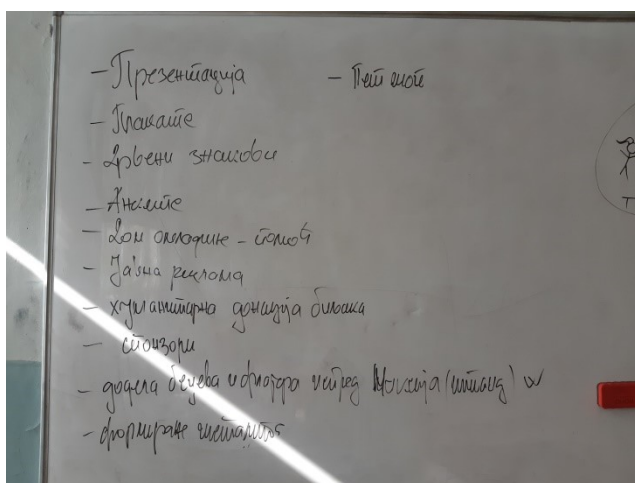 - Презентација
- Пет шоп
- Плакате
- Дрвени знакови
- Анкете
- Дом омладине - помоћ
- Јавна реклама
- хуманитарна донација биљака
- спонзори
- додела беџева и флајера испред (штанд)
- формирање